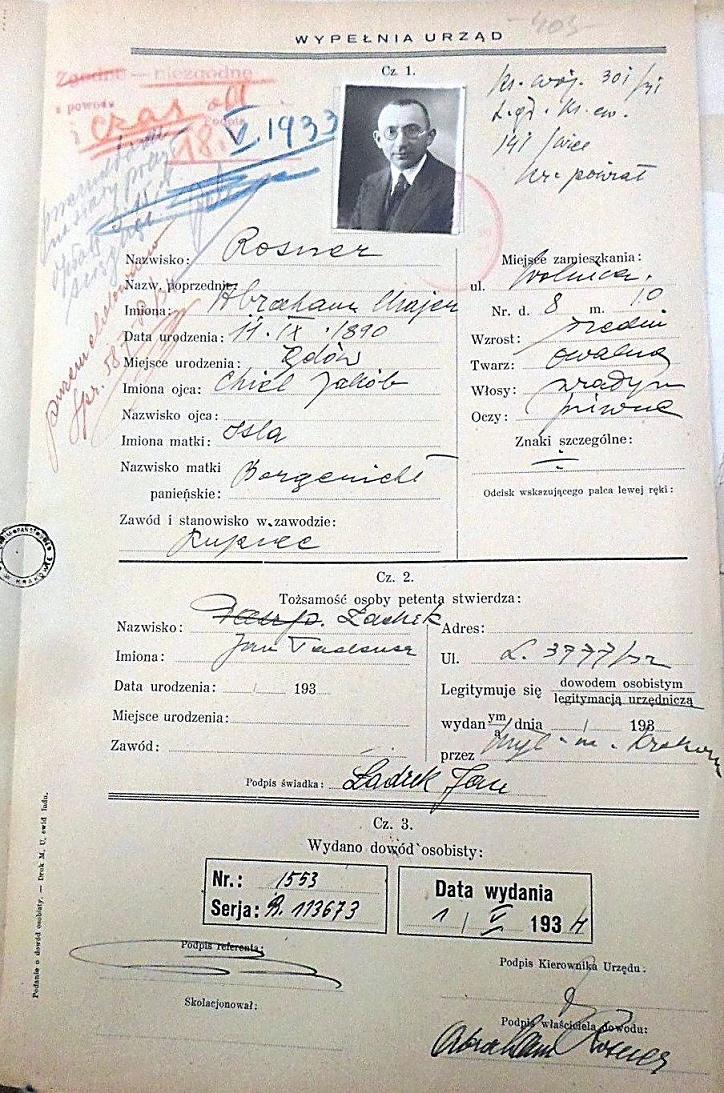 403
WYPEŁNIA URZĄD
Cz 1.
Zgodne — niezgodne
z powodu
czas od
18. V. 1933
ks. wój. 301/31
ks. ew.
141
powrat
Nazwisko: Rosner
Nazw. poprzednie:
Imiona: Abraham Majer
Data urodzenia: 11. IX. 1890
Miejsce urodzenia: Gdów
Imiona ojca: Chiel Jakób
Nazwisko ojca:
Imiona matki:
Nazwisko matki
panieńskie: Borgenicht
Zawód i stanowisko w zawodzie:
kupiec
Miejsce zamieszkania:
ul. Wolnica.
Nr. d. 8 m. 10
Wzrost: średni
Twarz: owalna
Włosy:
Oczy: piwne
Znaki szczególne:
Odcisk wskazującego palca lewej ręki:
Cz. 2.
Tożsamość osoby petenta stwierdza:
Nazwisko: Ladek
Imiona: Jan Tadeusz
Data urodzenia: / 193
Miejsce urodzenia:
Zawód:
Adres:
Ul. L. 3777/32
Legitymuje się dowodem osobistym
legitymacją urzędniczą
wydan ym/ą dnia / 193
przez
Podpis świadka: Ladek Jan
Cz. 3.
Wydano dowód osobisty:
Nr.: 1553
Serja: A. 113673
Data wydania
1 / V 1934
Podpis referenta:
Skolacjonował:
Podpis Kierownika Urzędu:
Podpis właściciela dowodu:
Abraham Rosner
Podanie o dowód osobisty. — Druk M. U. ewid ludn.